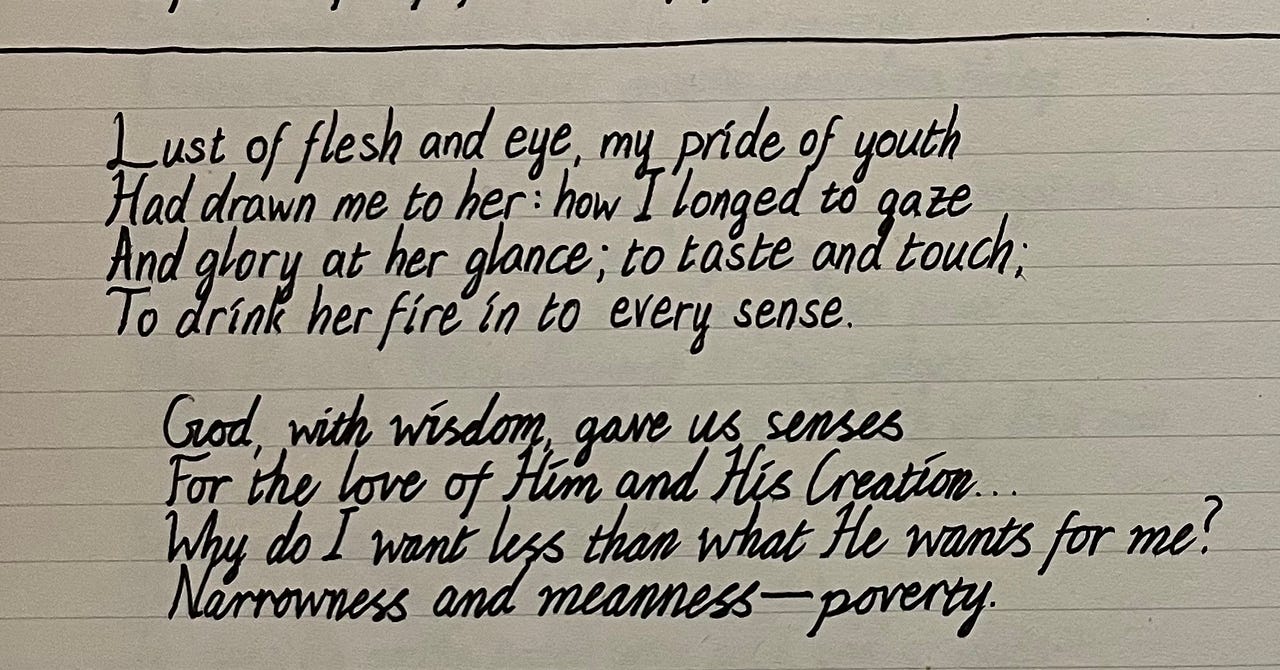 Lust of flesh and eye, my pride of youth
Had drawn me to her: how I longed to gaze
And glory at her glance; to taste and touch;
To drink her fire in to every sense.
God, with wisdom, gave us senses
For the love of Him and His Creation...
Why do I want less than what He wants for me?
Narrowness and meanness—poverty.